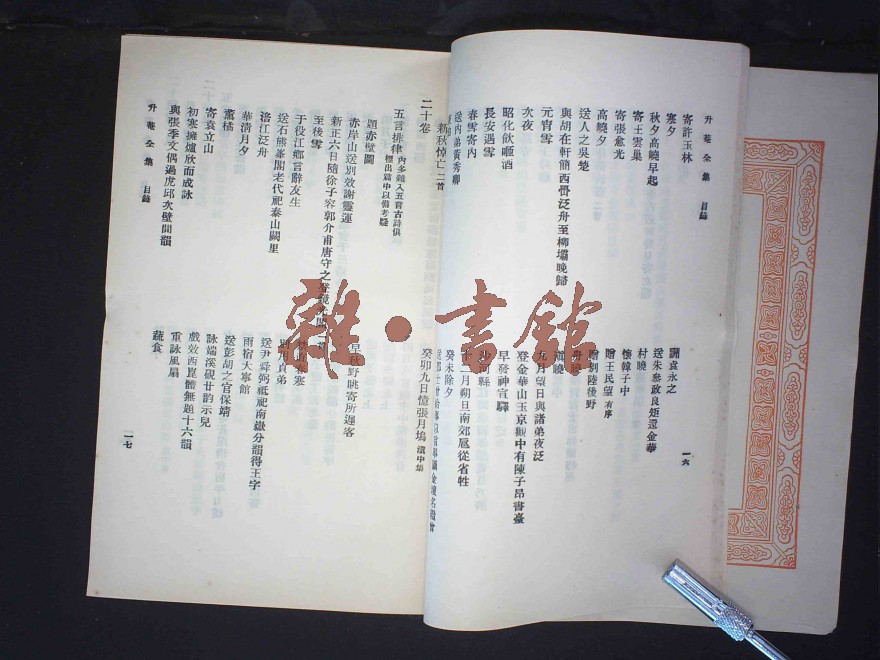 升菴全集 目錄 一六
寄許玉林
寒夕
秋夕高嶢早起
寄王雲巢
寄張愈光
高嶢夕
送人之吳楚
與胡在軒簡西嶨泛舟至柳壩晚歸
元宵雪
次夜
昭化飲咂酒
長安遇雪
春雪寄內
送內弟黃秀卿
新秋悼亡二首
袁永之
送朱參政良矩還金華
村曉
懷韓子中
贈王民望有序
贈劉陸後野
九月望日與諸弟夜泛
登金華山玉京觀中有陳子昂書臺
早發神宣驛
沙河縣
十二月朔旦南郊扈從省牲
癸未除夕
癸卯九日憶張月塢 滇中集
二十卷
五言排律內多錯入五言古詩俱標出篇中以備考疑
題赤壁圖
赤岸山送別效謝靈運
新正六日隨徐子容郭介甫唐守之
至後雪
于役江鄉言辭友生
送石熊峯閣老代祀泰山闕里
涪江泛舟
華清月夕
薰橘
寄袁立山
初寒擁爐欣而成詠
與張季文偶過虎邱次壁間韻
早秋野眺寄所遲客
送尹舜弼祇祀南嶽分韻得王字
雨宿大寧館
送彭胡之官保靖
詠端溪硯廿韵示兒
戲效西崑體無題十六韻
重詠風扇
蔬食
升菴全集 目錄 一七
雜·書館